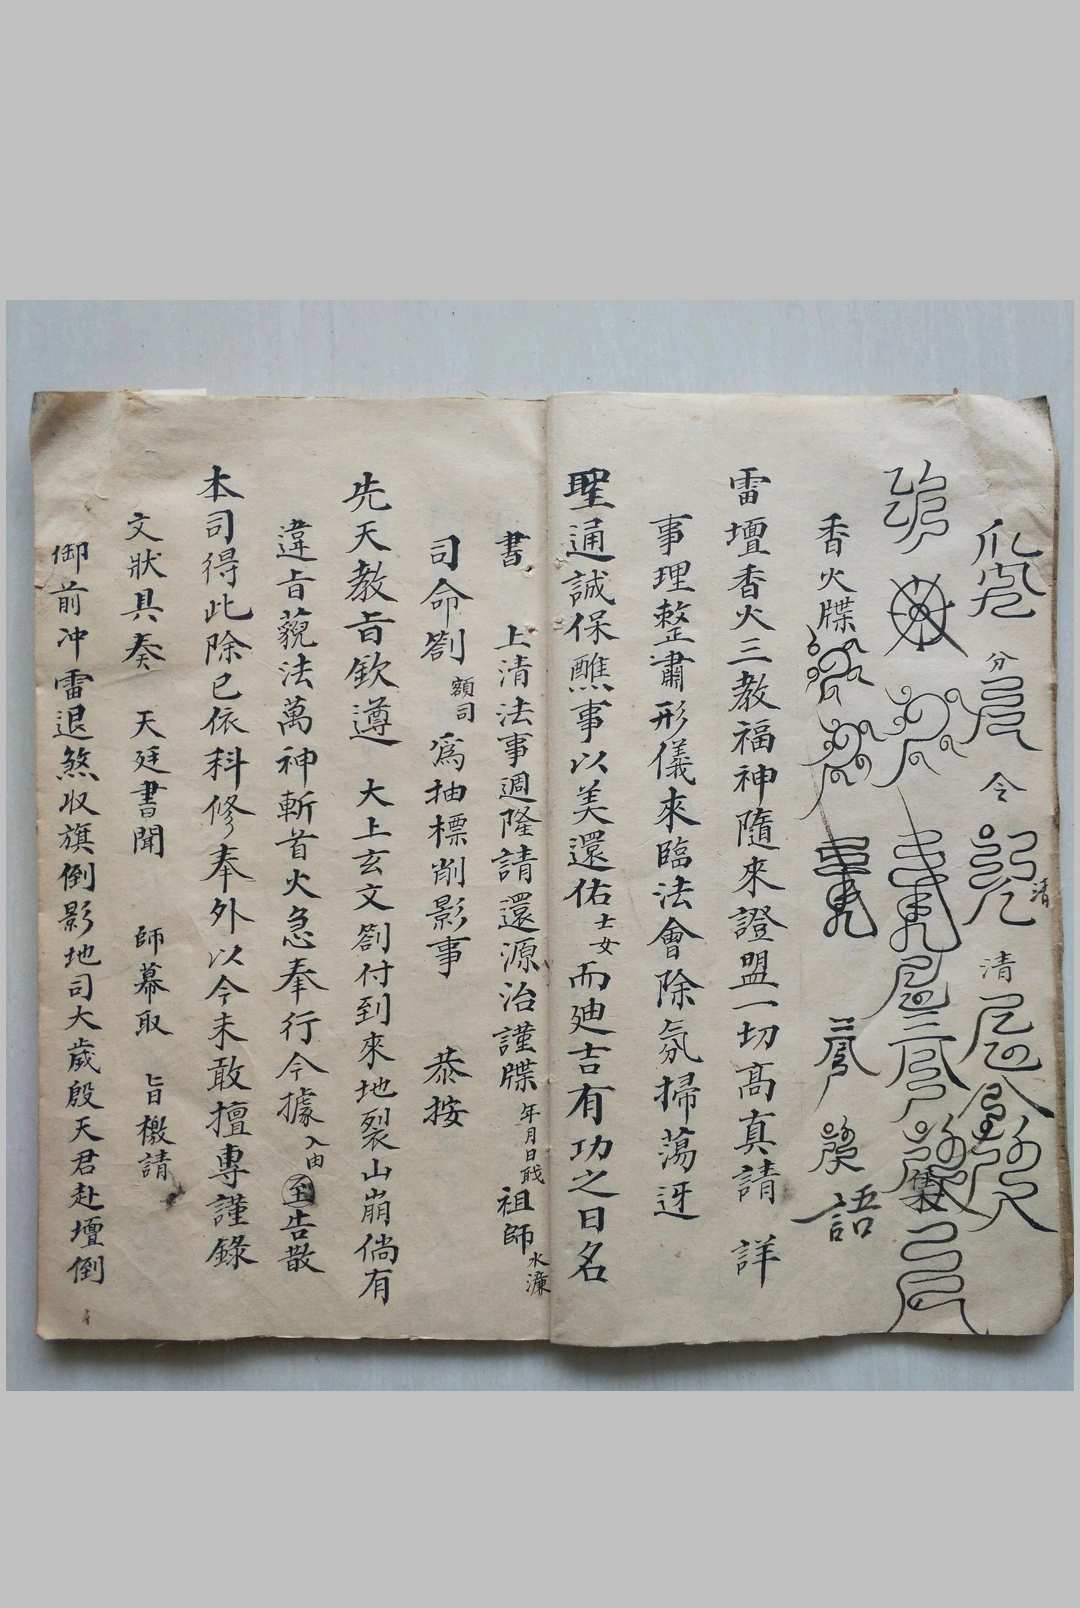 分 令 清 清
香火牒
語
雷壇香火三教福神隨來證盟一切高真請 詳
事理整肅形儀來臨法會除氛掃蕩迓
聖通誠保醮事以美還佑士女而廸吉有功之日名
書 上清法事週隆請還源治謹牒 年月日 祖師 水濂
司命劄 額司 為抽標削影事 恭按
先天教旨欽遵 大上玄文劄付到來地裂山崩倘有
違旨藐法萬神斬首火急奉行今據 入由 至 告散
本司得此除已依科修奉外以今未敢擅專謹錄
文狀具奏 天廷書聞 師幕取 旨檄請
御前冲雷退煞收旗倒影地司大歲殷天君赴壇倒